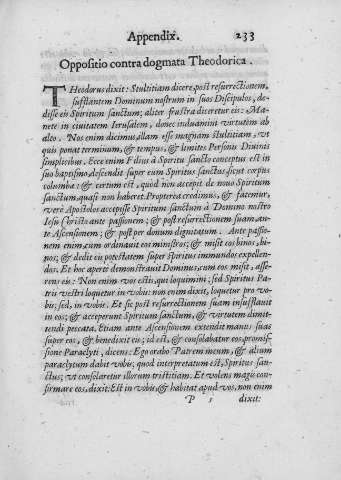 Appendix. 233
Oppositio contra dogmata Theodorica.
THeodorus dixit: Stultitiam dicere, post resurrectionem,
sufflantem Dominum nostrum in suos Discipulos, de-
disse eis Spiritum sanctum; aliter frustra diceretur eis: Ma-
nete in civitatem Ierusalem, donec induamini virtutem ab
alto. Nos enim dicimus, illam esse magnam stultitiam, vt
quis ponat terminum, & tempus, & limites Personis Diuinis
simplicibus. Ecce enim Filius à Spiritu sancto conceptus est in
suo baptismo, descendit super eum Spiritus sanctus sicut corpus
columbæ: & certum est, quòd non accepit de nouo Spiritum
sanctum, quasi non haberet. Propterea credimus, & fatemur,
verè Apostolos accepisse Spiritum sanctum à Domino nostro
Iesu Christo ante passionem; & post resurrectionem suam, an-
te Ascensionem; & post per donum dignitatum. Ante passio-
nem enim, cum ordinauit eos ministros; & misit eos binos, bi-
nos; & dedit eis potestatem super spiritus immundos expellen-
dos. Et hoc apertè demonstrauit Dominus, cum eos misit, asse-
rens eis: Non enim vos estis, qui loquimini; sed Spiritus Pa-
tris vestri loquetur in vobis: non enim dixit, loquetur pro vo-
bis; sed, in vobis. Et sic post resurrectionem suam insufflauit
in eos; & acceperunt Spiritum sanctum, & virtutem dimit-
tendi peccata. Etiam ante Ascensionem extendit manus suas
super eos, & benedixit eis; id est, & consolabatur eos promis-
sione Paraclyti, dicens: Ego orabo Patrem meum, & alium
paraclytum dabit vobis; quod interpretatum est, Spiritus san-
ctus; vt consolaretur illorum tristitiam. Et volens magis con-
firmare eos, dixit: Est in vobis, & habitat apud vos, non enim
P 1 dixit: